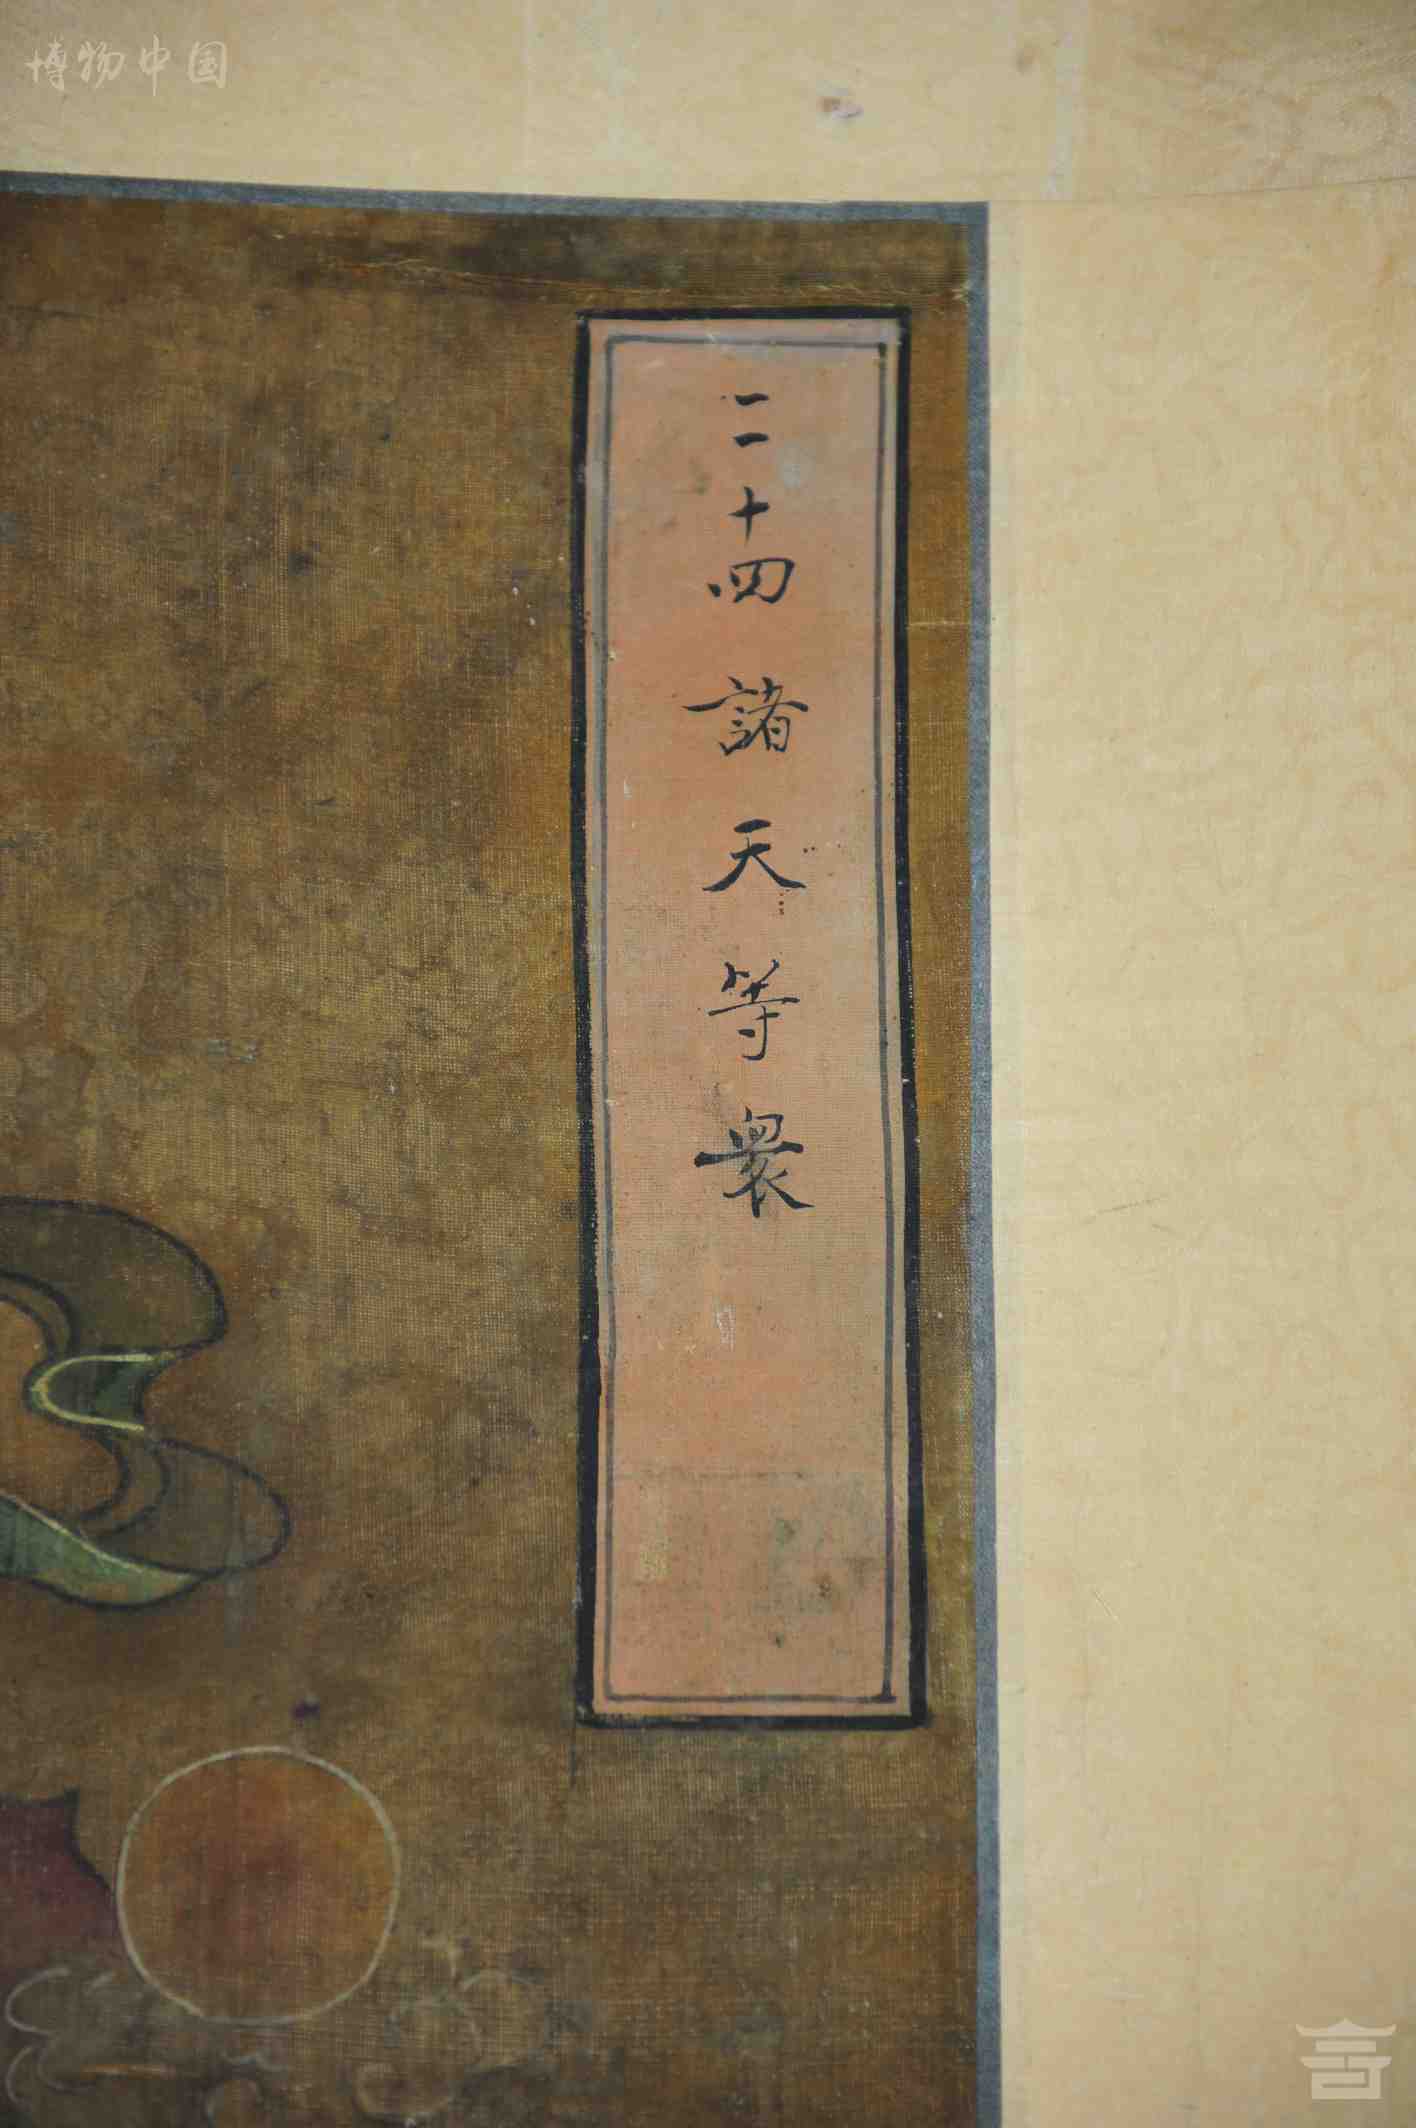 博物中国
二十四諸天等衆